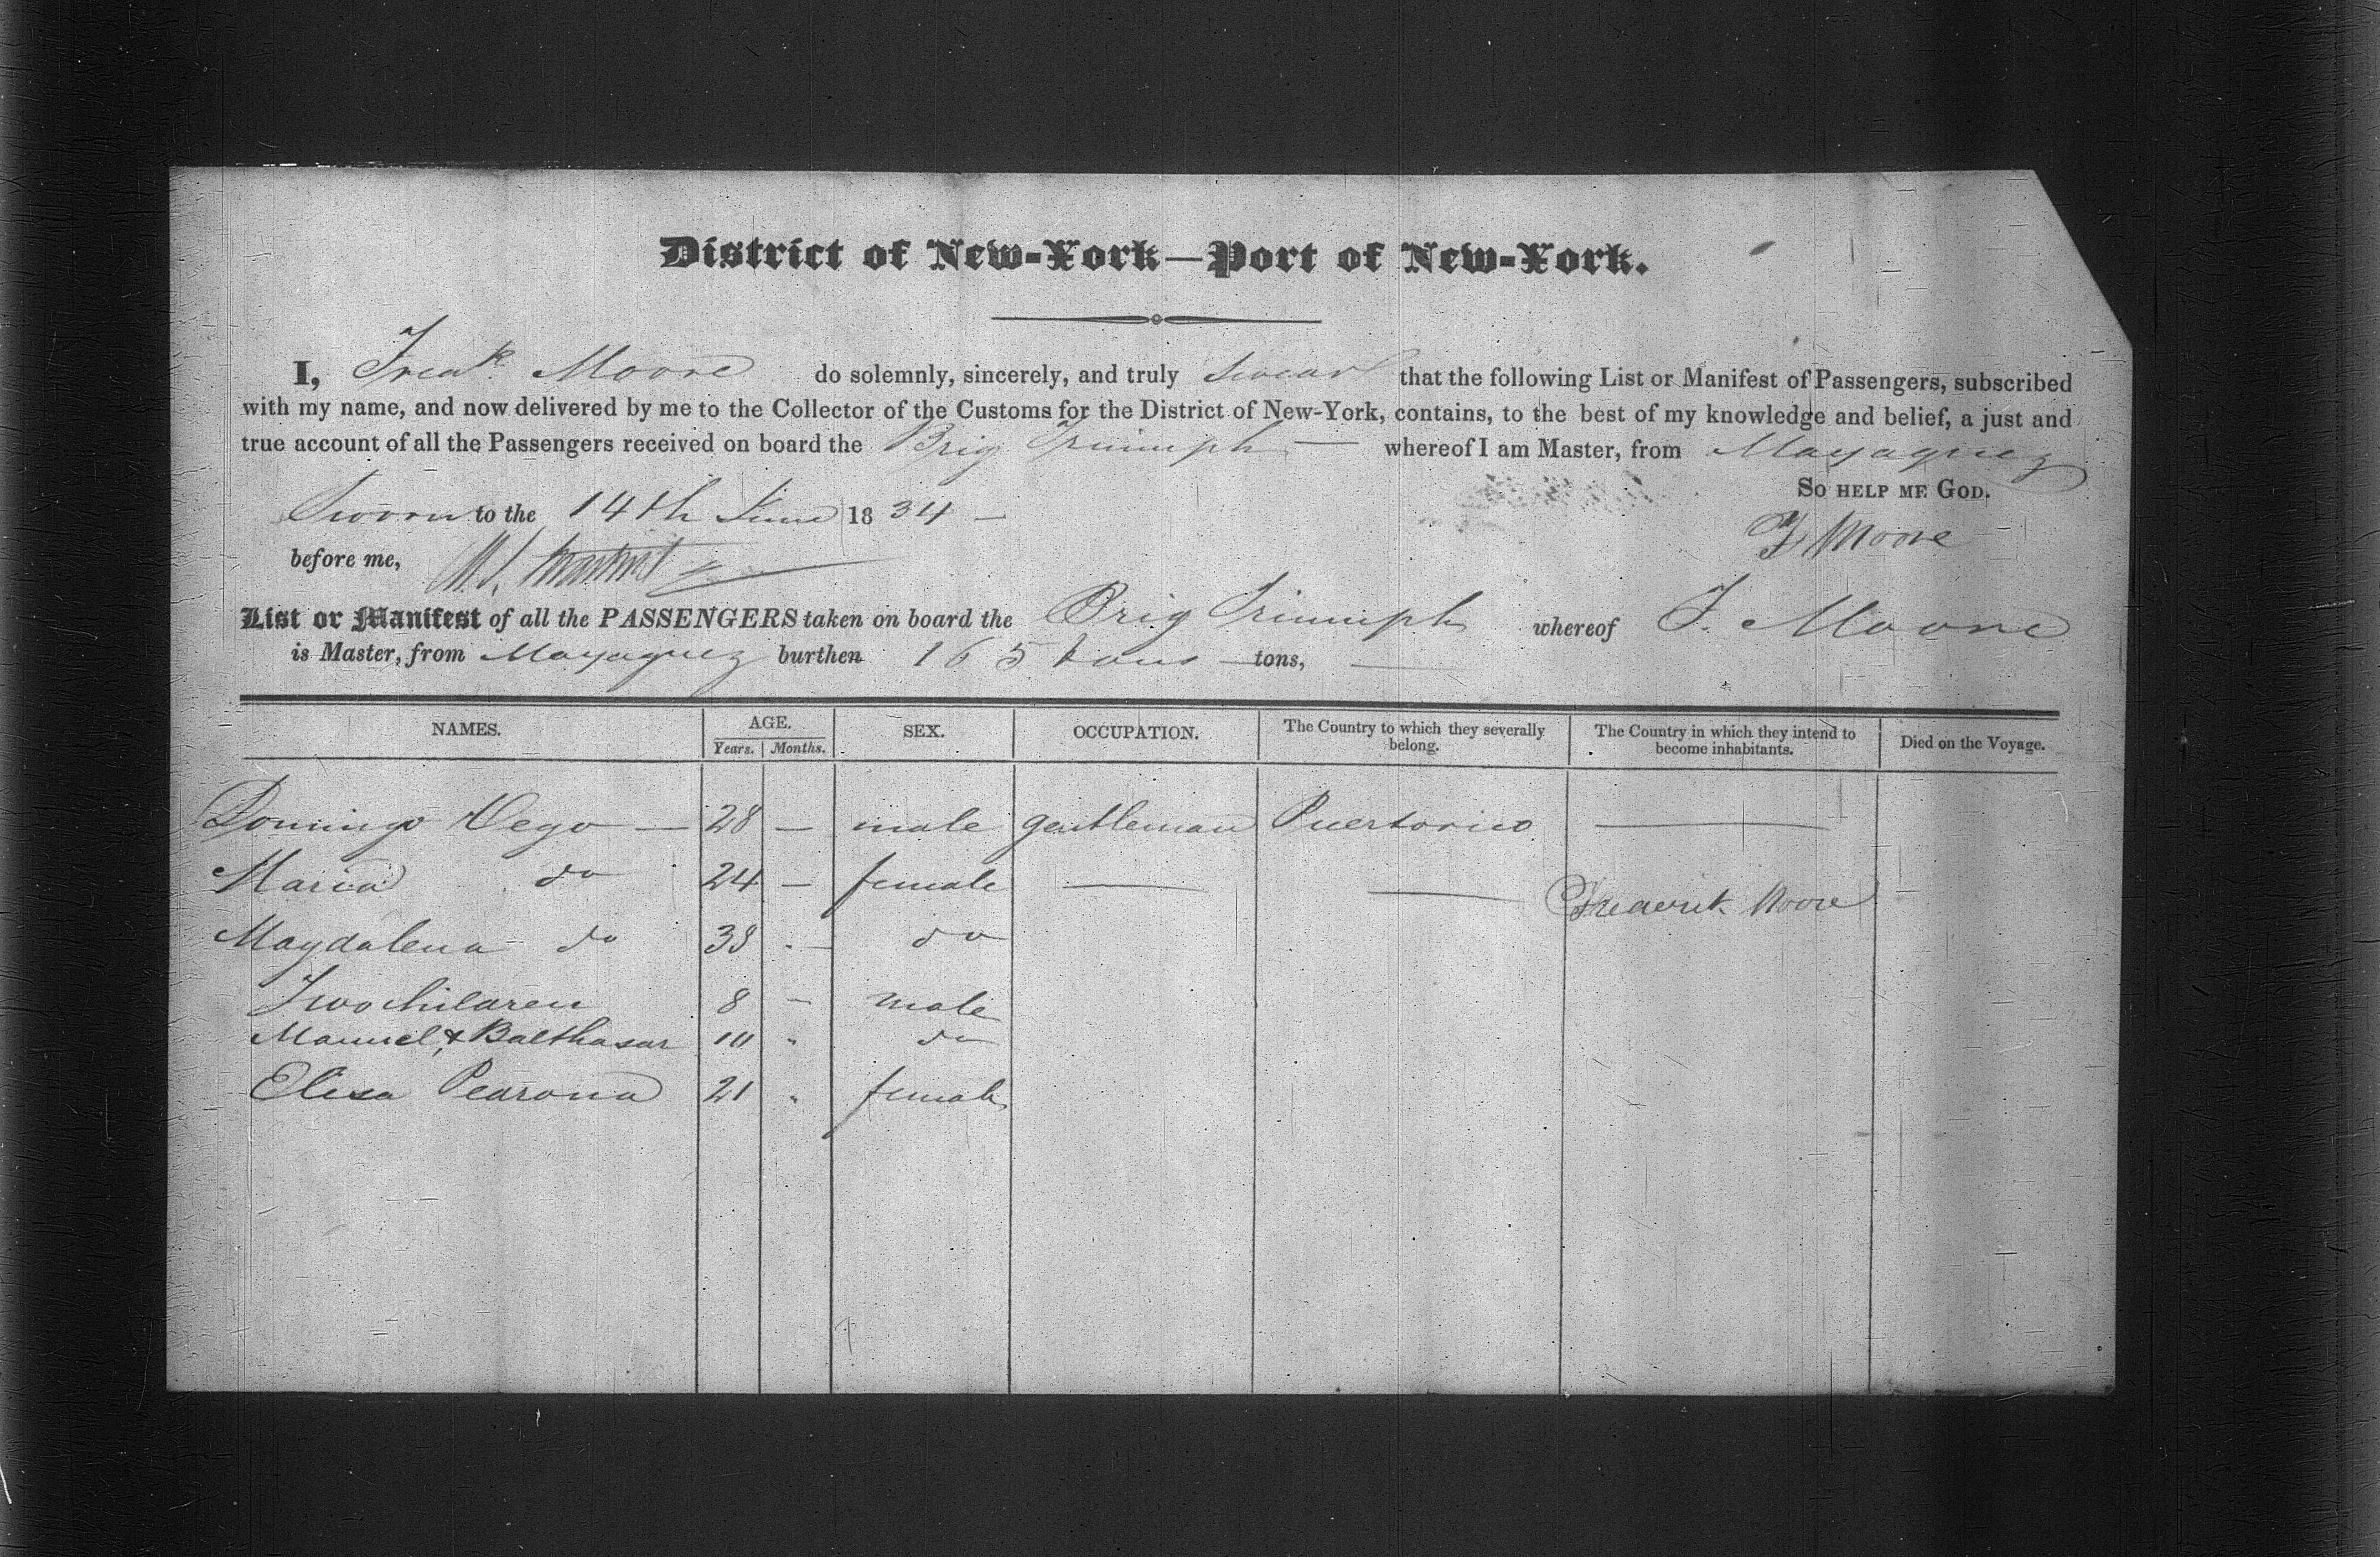 District of New-York—Port of New-York.
I, Fredk Moore do solemnly, sincerely, and truly swear that the following List or Manifest of Passengers, subscribed
with my name, and now delivered by me to the Collector of the Customs for the District of New-York, contains, to the best of my knowledge and belief, a just and
true account of all the Passengers received on board the Brig Triumph — whereof I am Master, from Mayaguez
So help me God.
Sworn to the 14th June 1834 —
F Moore
before me,
List or Manifest of all the PASSENGERS taken on board the Brig Triumph whereof F. Moore
is Master, from Mayaguez burthen 165 tons tons, —
NAMES. AGE. SEX. OCCUPATION. The Country to which they severally belong. The Country in which they intend to become inhabitants. Died on the Voyage.
Years. Months.
Domingo Vego — 28 — male gentleman Puertorico —
Maria do 24 — female — —
Frederick Moore
Magdalena do 38 - — do
Two children 8 — male
Manuel & Balthasar 10 " do
Elisa Pearona 21 " female